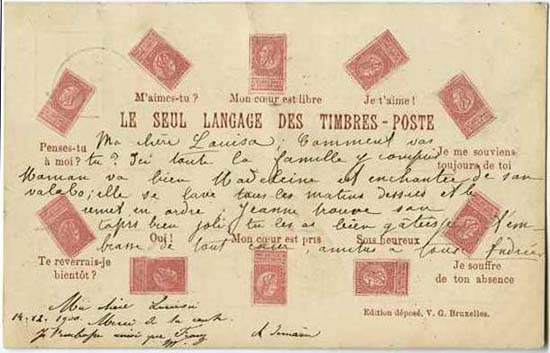 M'aimes-tu ?
Mon cœur est libre
Je t'aime !
LE SEUL LANGAGE DES TIMBRES-POSTE
Penses-tu
à moi ?
Je me souviens
toujours de toi
Ma chère Louisa, Comment vas
tu ? Ici toute la famille y compris
Maman va bien Madeleine est enchantée de son
elle se lave tous les matins dessus et le
remet en ordre Jeanne trouve son
bien joli tu les as bien gâtées
de tout cœur, amitiés à tous
Oui !
Mon cœur est pris
Sois heureux
Te reverrais-je
bientôt ?
Je souffre
de ton absence
Ma chère Louisa
Merci de ta carte
A demain
Edition déposé, V. G. Bruxelles.